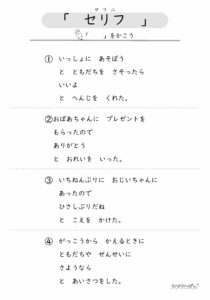 せりふ
「 セリフ 」
「 」をかこう
① いっしょに あそぼう
と ともだちを さそったら
いいよ
と へんじを くれた。
② おばあちゃんに プレゼントを
もらったので
ありがとう
と おれいを いった。
③ いちねんぶりに おじいちゃんに
あったので
ひさしぶりだね
と こえを かけた。
④ がっこうから かえるときに
ともだちや せんせいに
さようなら
と あいさつをした。